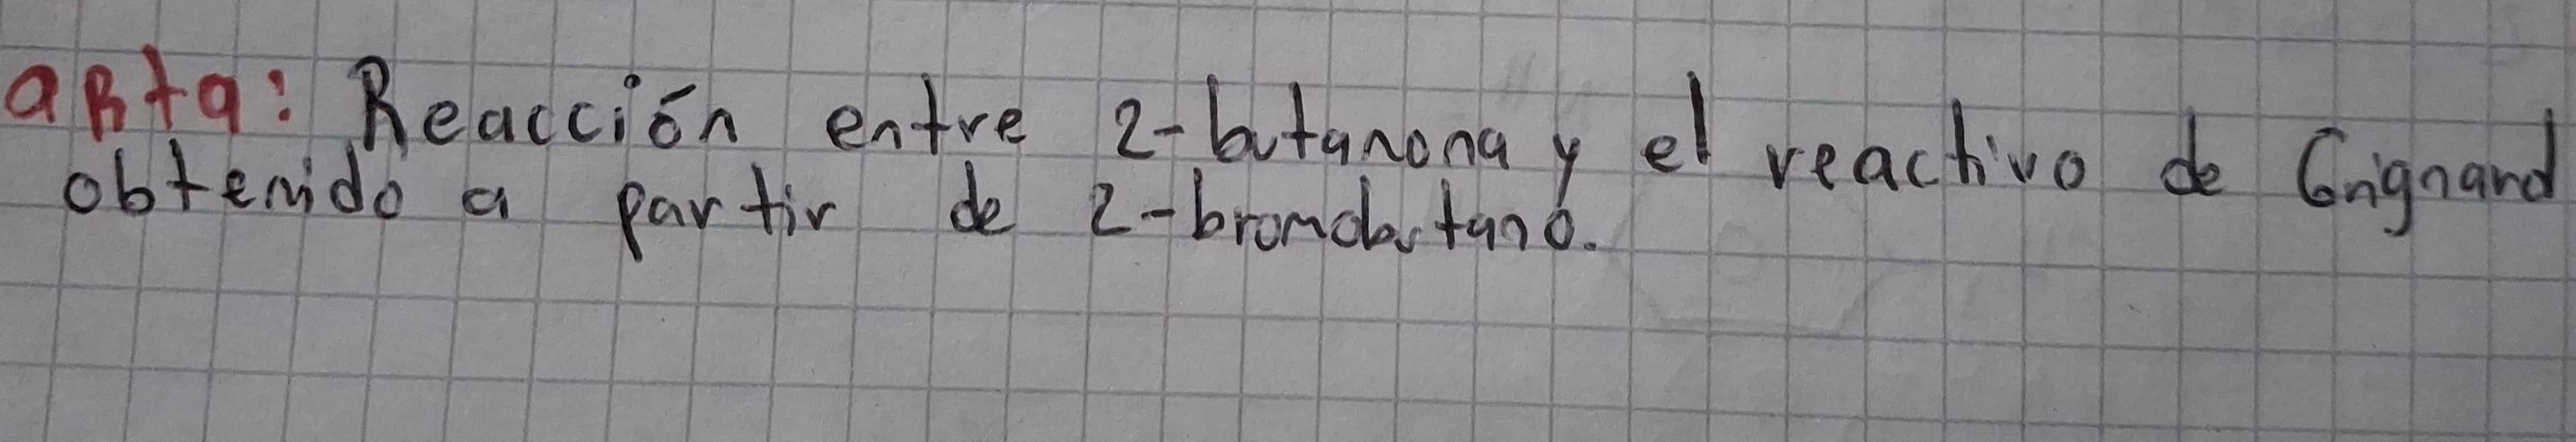 a Rta: Reacción entre 2-butanona y el reactivo de Grignard
obtenido a partir de 2-bromobutano.